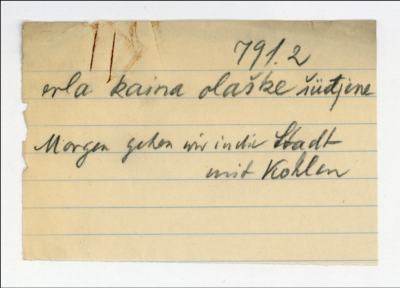 791.2
erla kaina olaške südjene
Morgen gehen wir in die Stadt
mit Kohlen